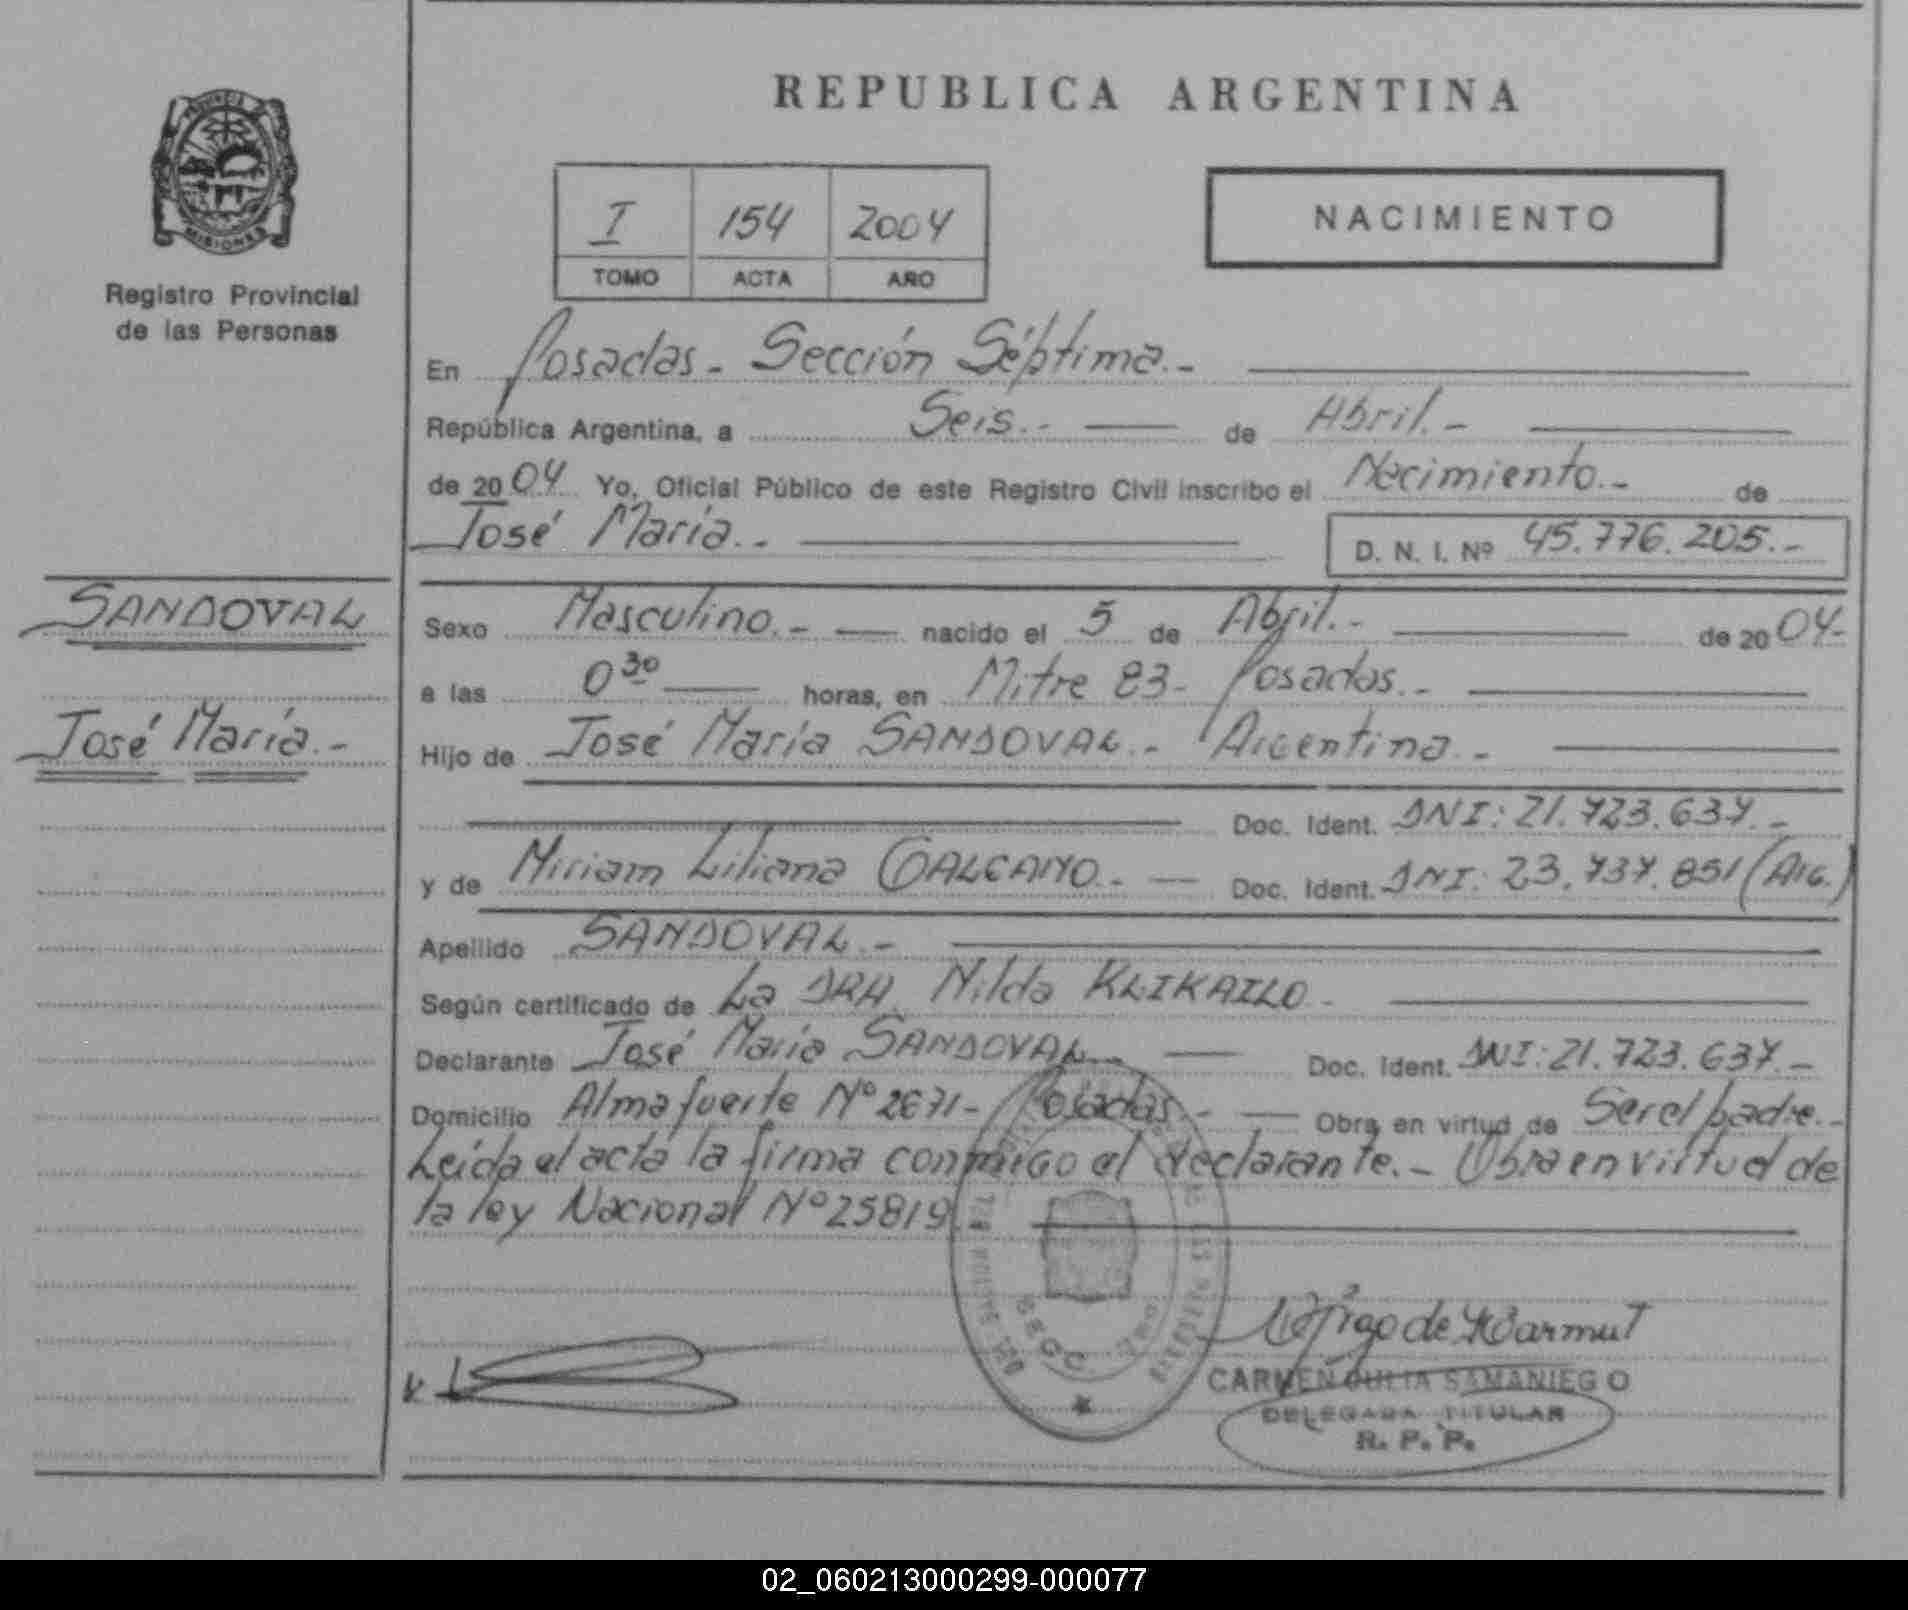 REPUBLICA ARGENTINA
PROVINCIA DE
MISIONES
Registro Provincial
de las Personas
I 154 2004
TOMO ACTA AÑO
NACIMIENTO
En Posadas.- Sección Séptima.-
República Argentina, a Seis.- de Abril.-
de 2004 Yo, Oficial Público de este Registro Civil inscribo el Nacimiento.- de
José María.- D. N. I. Nº 45.776.205.-
SANDOVAL
José María.-
Sexo Masculino.- nacido el 5 de Abril.- de 2004-
a las 0 30 horas, en Mitre 83- Posadas.-
Hijo de José María SANDOVAL.- Argentina.-
Doc. Ident. DNI: 21.723.637.-
y de Miriam Liliana GALEANO.- Doc. Ident. DNI: 23.737.851 (Arg.)
Apellido SANDOVAL.-
Según certificado de La DRA Nilda KLIKAILO.-
Declarante José María SANDOVAL.- Doc. Ident. DNI: 21.723.637.-
Domicilio Almafuerte Nº 2671- Posadas.- Obra en virtud de Ser el padre.-
Leída el acta la firma conmigo el declarante.- Obra en virtud de
la ley Nacional Nº 25819.-
SECC.
CARMEN JULIA SAMANIEGO
DELEGADA TITULAR
R. P. P.
02_060213000299-000077